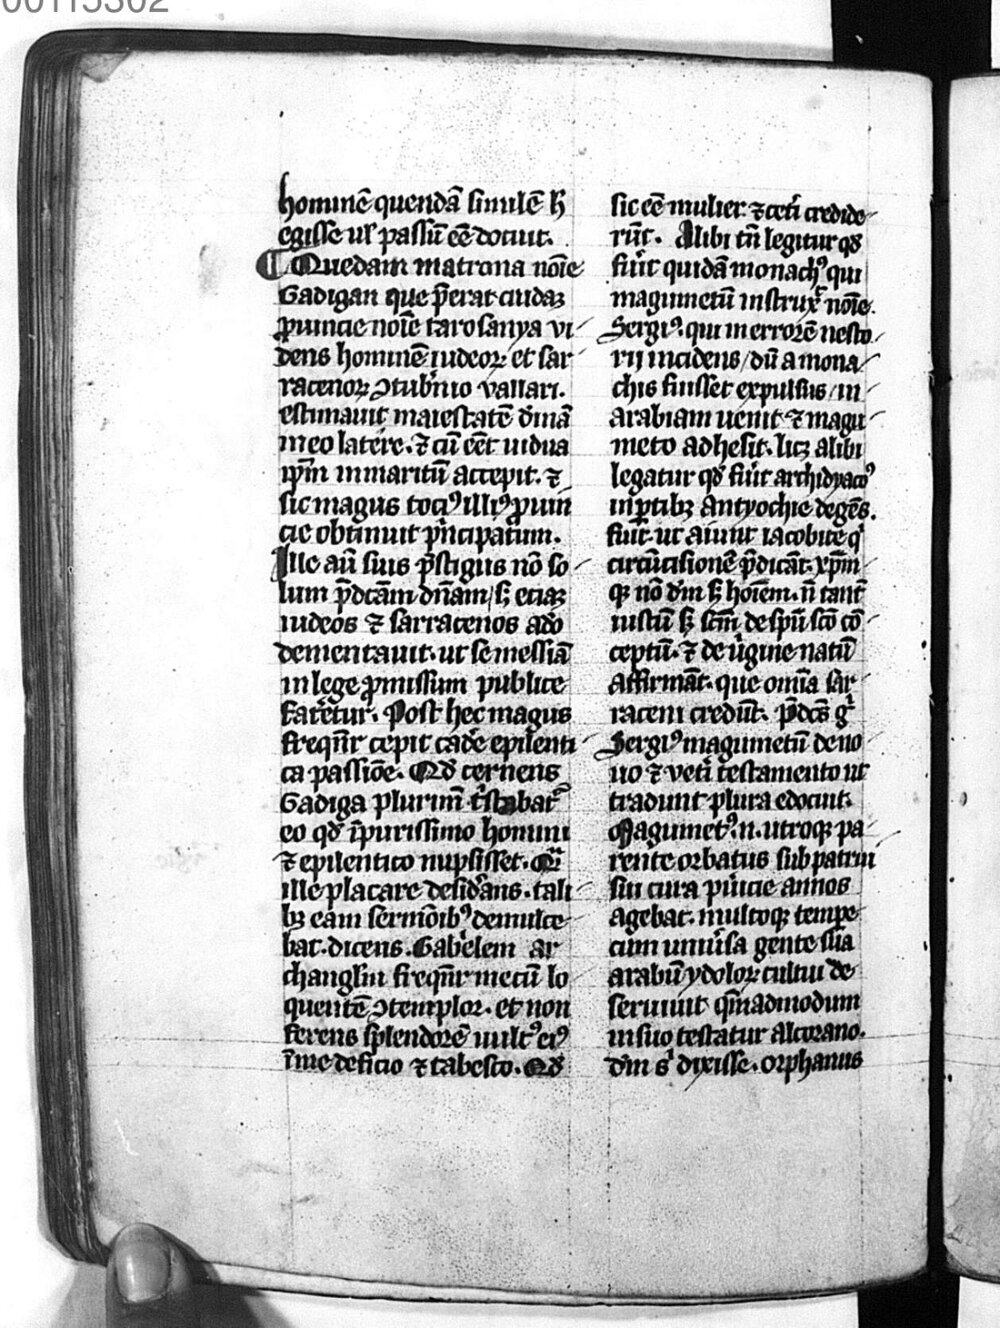 00115302
hominē quendā similē h̄
egisse ul' passū eē docuit.
Quedam matrona noīe
Gadigan que p̄erat cuidaꝫ
ꝓuincie noīe corosanya vi
dens hominē iudeoꝝ et sar
racenoꝝ ꝯtub'nio vallari.
estimauit maiestatē diuinā
in eo latere. ⁊ cū eēt uidua
ip̄m in maritū accepit. ⁊
sic magus tociꝰ illiꝰ ꝓuin
cie obtinuit p̄ncipatum.
Ille aū suis p̄stigiis nō so
lum p̄dcām dn̄am / sꝫ eciaꝫ
iudeos ⁊ sarracenos adeo
dementauit. ut se messiā
in lege ꝓmissum publice
fatēetur. Post hec magus
freqn̄r cepit cadē epilenti
ca passiōe. Qd̄ cernens
Gadiga plurimū t'stabat̄
eo qd̄ īpurissimo homini
⁊ epilentico nupsisset. Quā
ille placare desid'ans. tali
bꝫ eam sermōibꝰ demulce
bat. dicens. Gab'elem ar
changlm̄ freqn̄r mecū lo
quentē ꝯtemplor. et non
ferens splendorē uultꝰ eiꝰ
ī me deficio ⁊ tabesco. Qd̄
sic eē mulier ⁊ cet'i credide
rūt. Alibi tn̄ legitur qd̄
fuit quidā monachꝰ qui
magumetū instrux̄ noīe
Sergiꝰ. qui in errorē nesto
rij incidens / dū a mona
chis fuisset expulsus / in
arabiam uenit ⁊ magu
meto adhesit. licꝫ alibi
legatur qd̄ fuit archidyacoꝰ
in ꝑtibꝫ Antyochie degēs.
fuit. ut aiunt iacobite q'
circūcisionē p̄dicāt. xp̄m
qꝫ nō dm̄ sꝫ hoīem. n̄ tant̄
iustū sꝫ scm̄ de spū scō cō
ceptū. ⁊ de u'gine natū
affirmāt. que omīa sar
raceni credūt. p̄dcs̄ g'
Sergiꝰ magumetū de no
uo ⁊ vet'i testamento ut
tradunt plura edocuit.
Magumetꝰ. n. utroqꝫ pa
rente orbatus sub patrui
sui cura pu'icie annos
agebat. multoqꝫ tempe
cum uniu'sa gente sua
arabū ydoloꝝ cultui de
seruiuit quēadmodum
in suo testatur alcorano.
dm̄ s' dixisse. orphanus